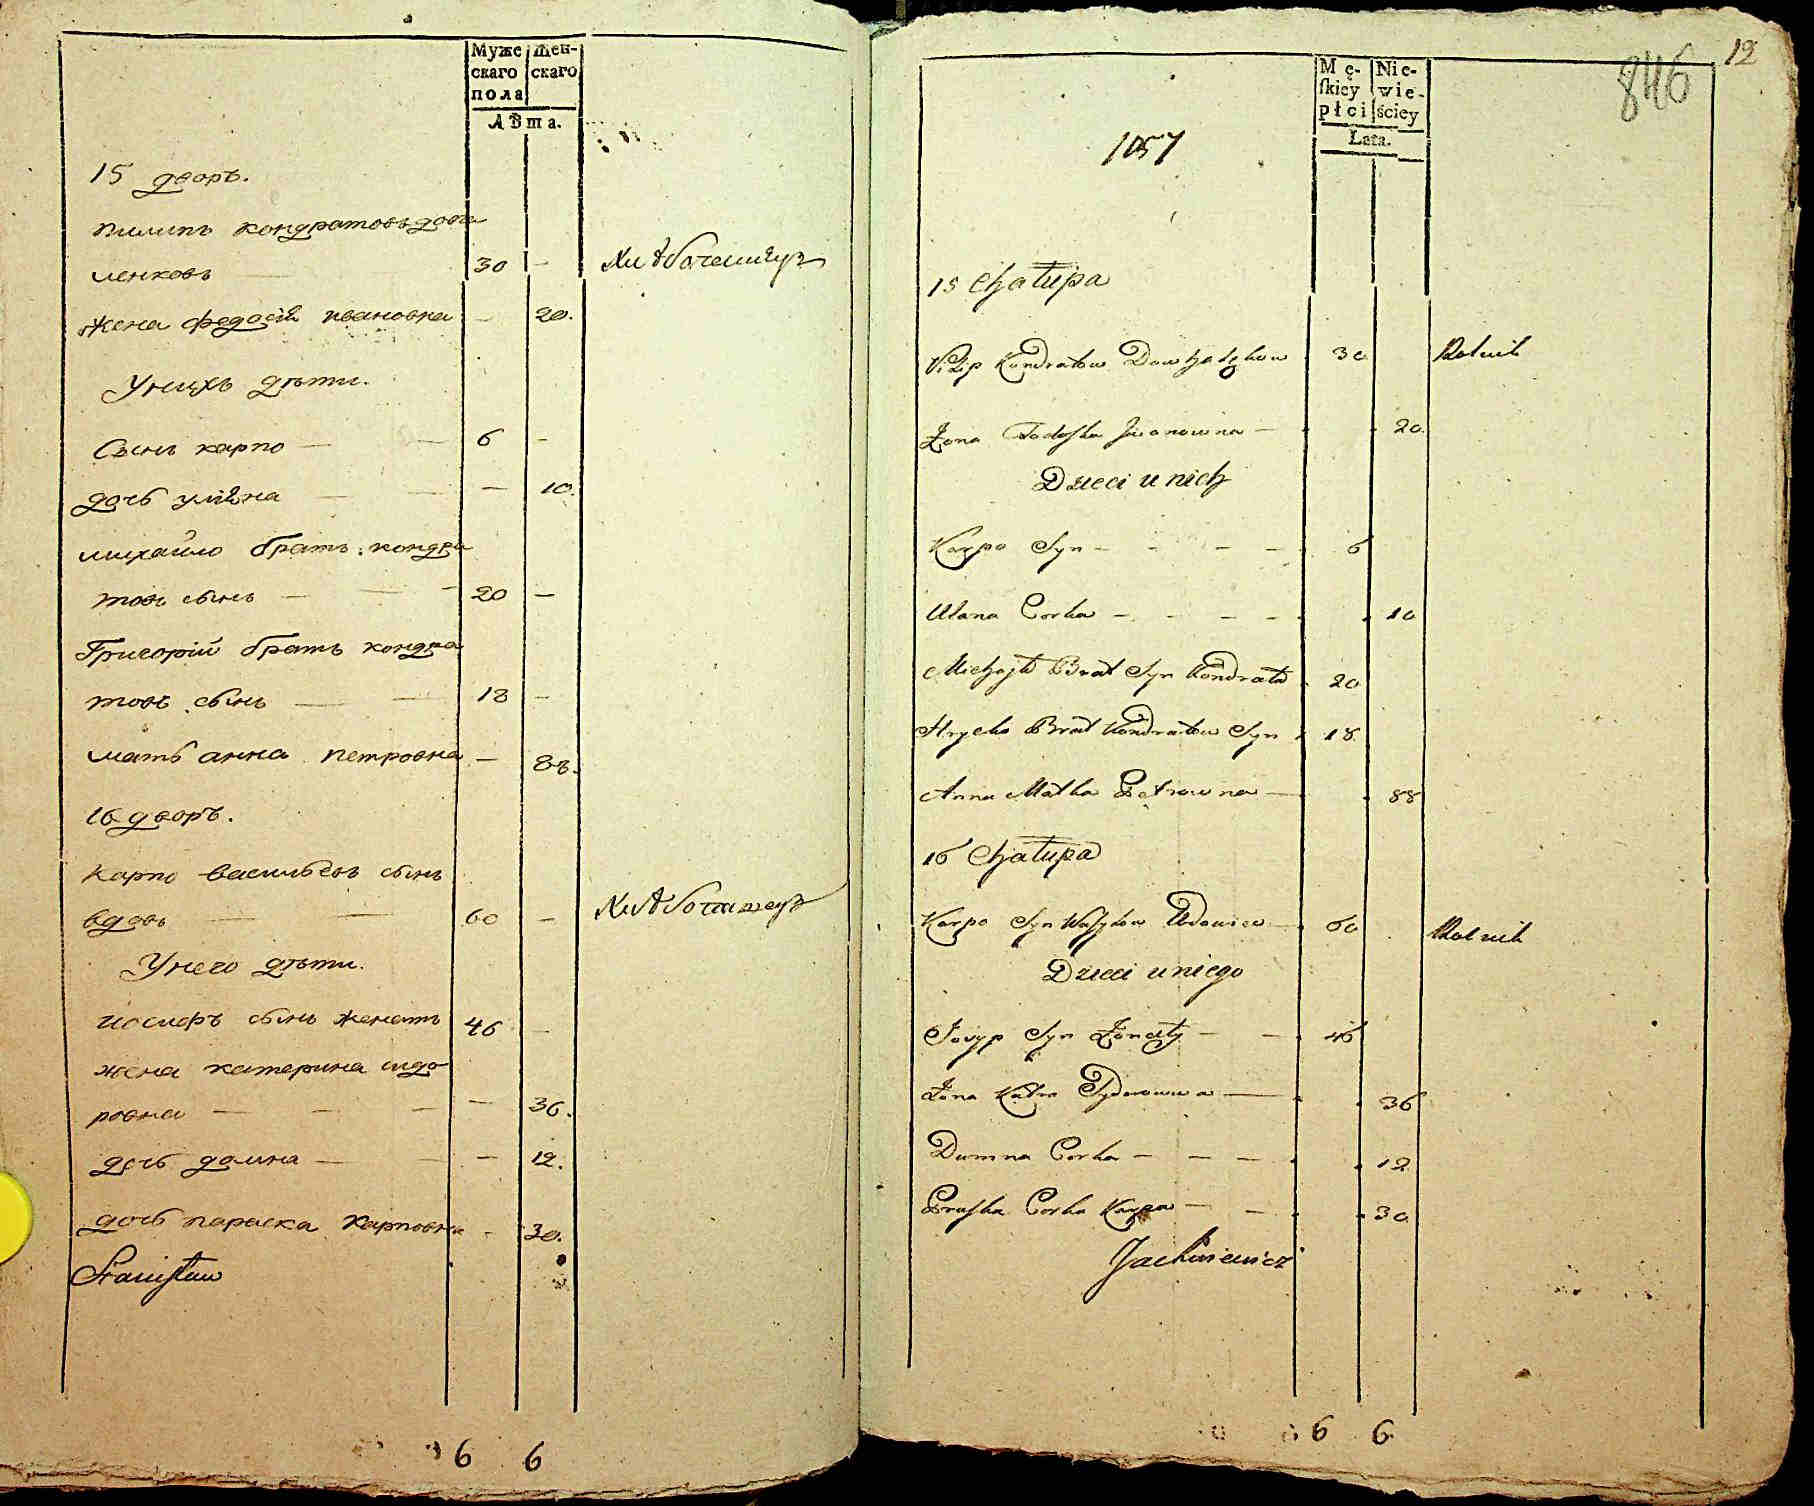 Муже скаго пола
Жен- скаго
Лѣта.
15 дворъ.
пилипъ кондратовъ довга
ленковъ 30 —
жена федосіѣ ивановна — 20.
Унихъ дѣти.
Сынъ карпо — 6 —
дочь улiяна — 10.
михайло братъ кондра
товъ сынъ — 20 —
Григорій братъ кондра
товъ сынъ — 18 —
мать анна петровна — 88.
16 дворъ.
карпо васильевъ сынъ
вдовъ — 60 —
Унего дѣти.
иосифъ сынъ женатъ 46 —
жена катерина сидо
ровна — 36.
дочь домна — 12.
дочь параска карповна - 30.
Stanisław
6 6
12
846
Mę- skiey płci
Nie- wie- ściey
Lata.
1057
15 Chałupa
Filip Kondratow Dowhalękow 30 Rolnik
Żona Fedoska Jwanowna — 20.
Dzieci u nich
Karpo Syn — 6
Ulana Corka — 10
Michayło Brat Syn Kondrata 20
Hryćko Brat Kondratow Syn 18
Anna Matka Petrowna — 88
16 Chałupa
Karpo Syn Wasylow Wdowiec — 60 Rolnik
Dzieci u niego
Josyp Syn Żonaty — 46
Żona Katra Sydorowna — 36
Dumna Corka — 12
Praska Corka Karpa — 30
Jachiniewicz
6 6